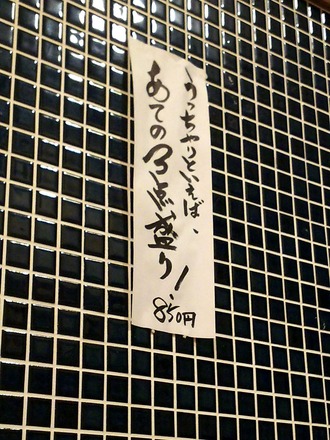 うっちゃりといえば、
あての3点盛り!
850円